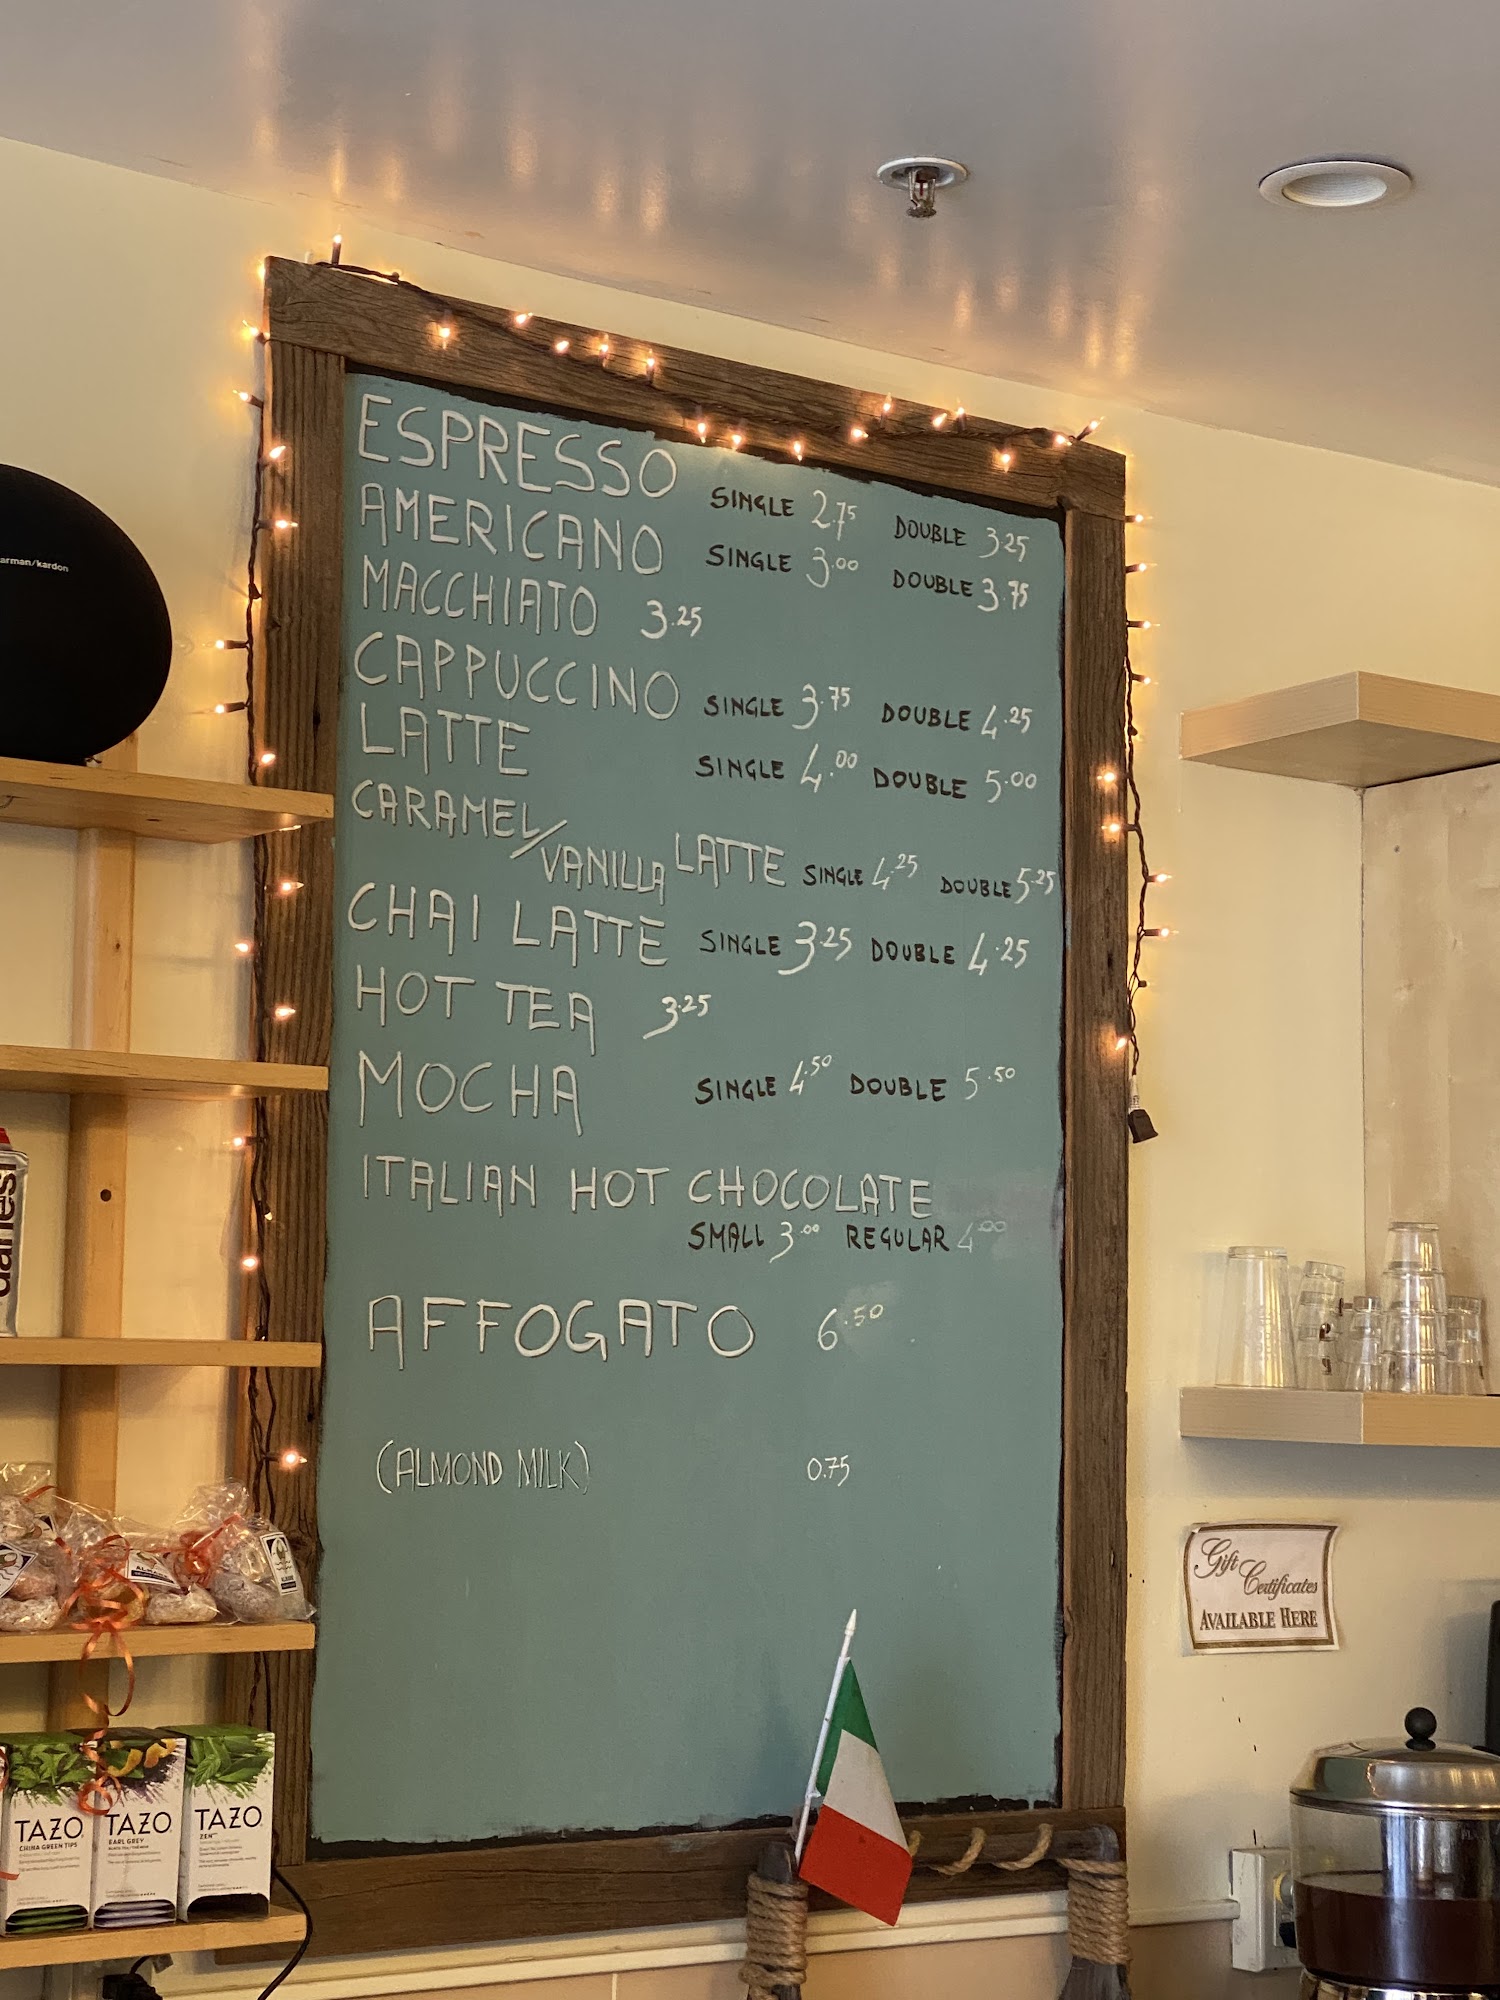 ESPRESSO SINGLE 2.75 DOUBLE 3.25
AMERICANO SINGLE 3.00 DOUBLE 3.75
MACCHIATO 3.25
CAPPUCCINO SINGLE 3.75 DOUBLE 4.25
LATTE SINGLE 4.00 DOUBLE 5.00
CARAMEL/VANILLA LATTE SINGLE 4.25 DOUBLE 5.25
CHAI LATTE SINGLE 3.25 DOUBLE 4.25
HOT TEA 3.25
MOCHA SINGLE 4.50 DOUBLE 5.50
ITALIAN HOT CHOCOLATE
SMALL 3.00 REGULAR 4.00
AFFOGATO 6.50
(ALMOND MILK) 0.75
arman/kardon
danesi
Gift
Certificates
AVAILABLE HERE
TAZO
CHINA GREEN TIPS
TAZO
EARL GREY
TAZO
ZEN